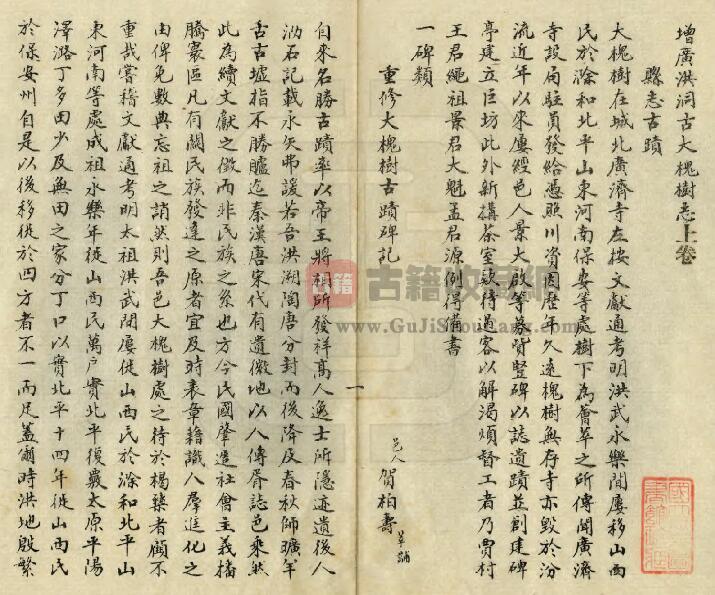 增廣洪洞古大槐樹志上卷
縣志古蹟
大槐樹在城北廣濟寺左按文獻通考明洪武永樂間屢移山西
民於滁和北平山東河南保安等處樹下為會萃之所傳聞廣濟
寺設局駐員發給憑照川資因歷年久遠槐樹無存寺亦毀於汾
流近年以來屢經邑人景大啟等募貲豎碑以誌遺蹟並創建碑
亭建立巨坊此外新構茶室欵待過客以解渴煩督工者乃賈村
王君繩祖景君大魁孟君源例得備書
一碑類
重修大槐樹古蹟碑記
邑人 賀柏壽
自來名勝古蹟率以帝王將相所發祥高人逸士所隱迹遺後人
泐石記載永矢弗諼若吾洪溯陶唐分封而後降及春秋師曠羊
舌古墟指不勝臚迄秦漢唐宋代有遺徽地以人傳胥誌邑乘然
此為續文獻之徵而非民族之系也方今民國肇造社會主義播
騰寰區凡有關民族發達之原者宜及時表章藉識人羣進化之
由俾免數典忘祖之誚然則吾邑大槐樹處之待於楬櫫者顧不
重哉嘗稽文獻通考明太祖洪武間屢徙山西民於滁和北平山
東河南等處成祖永樂年徙山西民萬戶實北平復覈太原平陽
澤潞丁多田少及無田之家分丁口以實北平十四年徙山西民
於保安州自是以後移徙於四方者不一而足蓋爾時洪地殷繁
一
古籍收藏網
www.GuJiShouCang.com